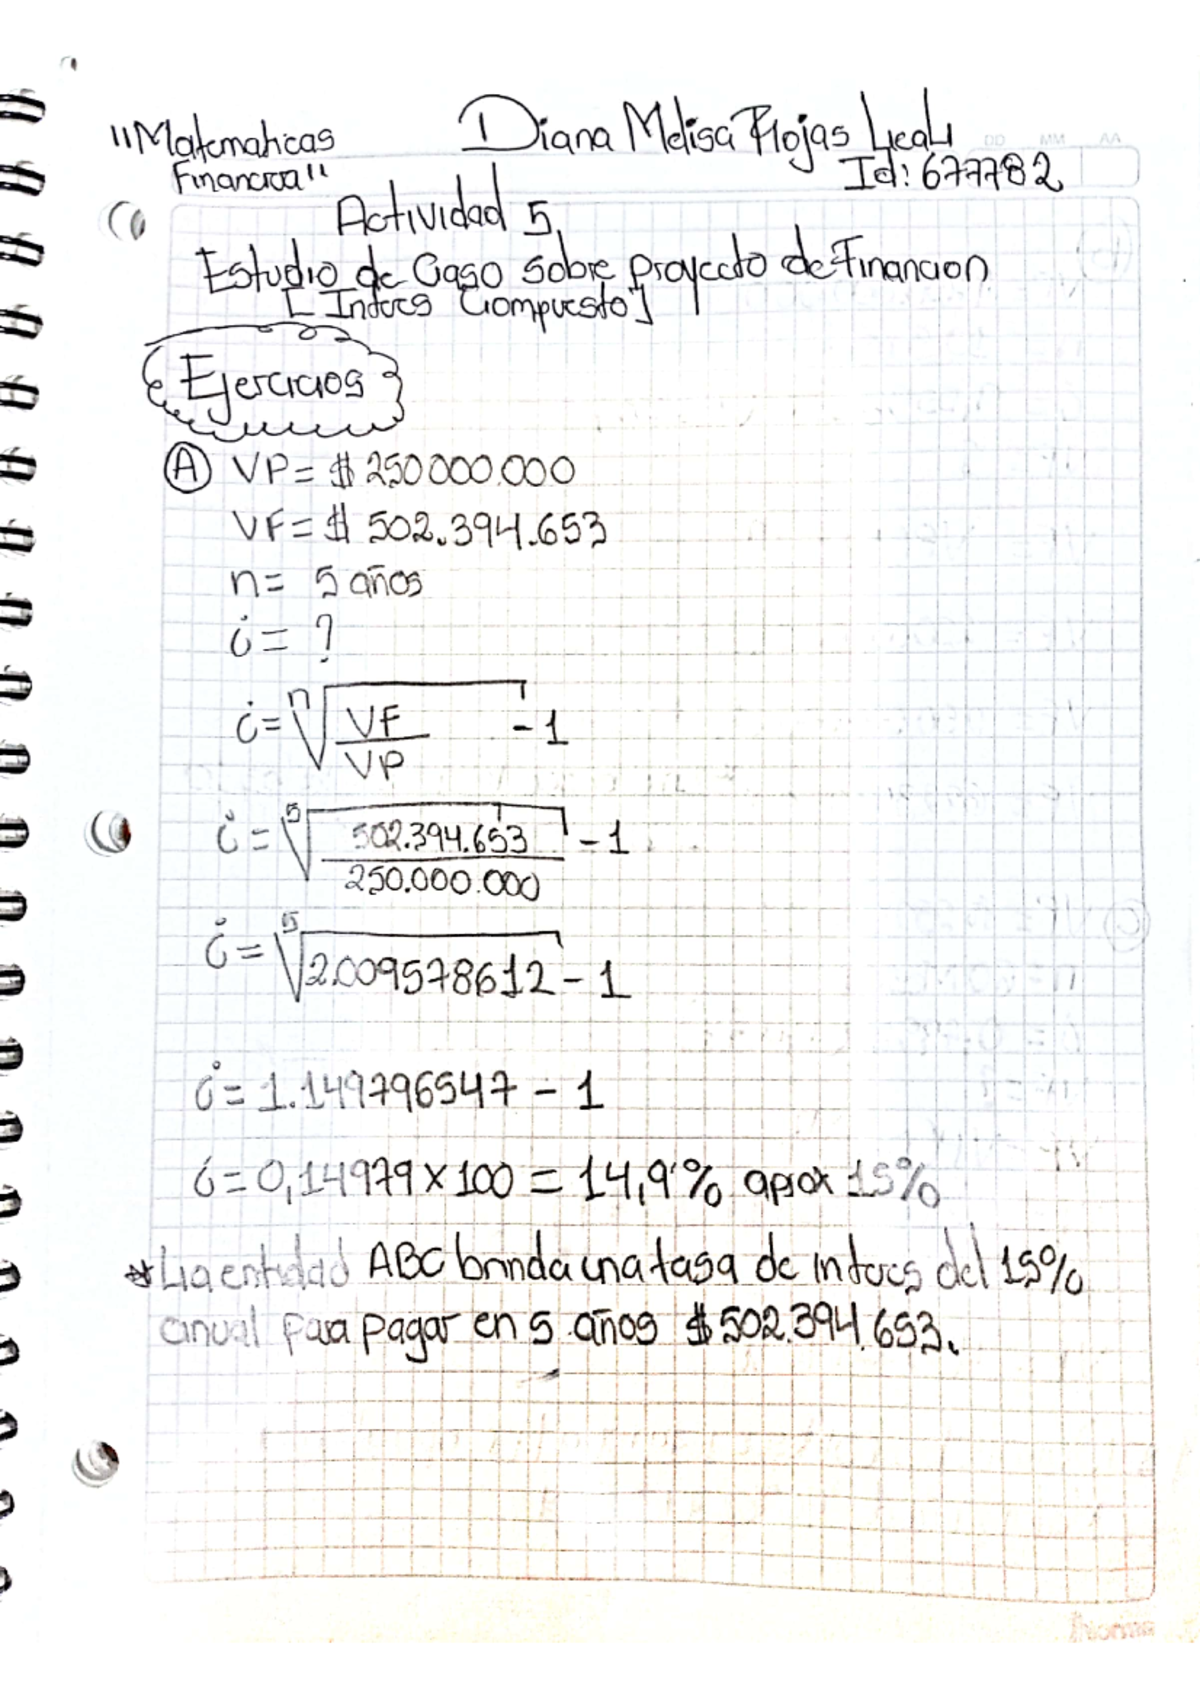 "Matematicas Diana Melisa Rojas Leal
Financiera" Id: 677782
DD MM AA
Actividad 5.
Estudio de Caso sobre proyecto de Financion
[Interes Compuesto]
Ejercicios
A VP= $ 250.000.000
VF= $ 502.394.653
n= 5 años
i= ?
i= n√ VF/VP - 1
i= 5√ 502.394.653/250.000.000 - 1
i= 5√2.009578612 - 1
i= 1.149796547 - 1
i= 0,14979 x 100 = 14,9% aprox 15%
* La entidad ABC brinda una tasa de interes del 15%
anual para pagar en 5 años $ 502.394.653.
norma